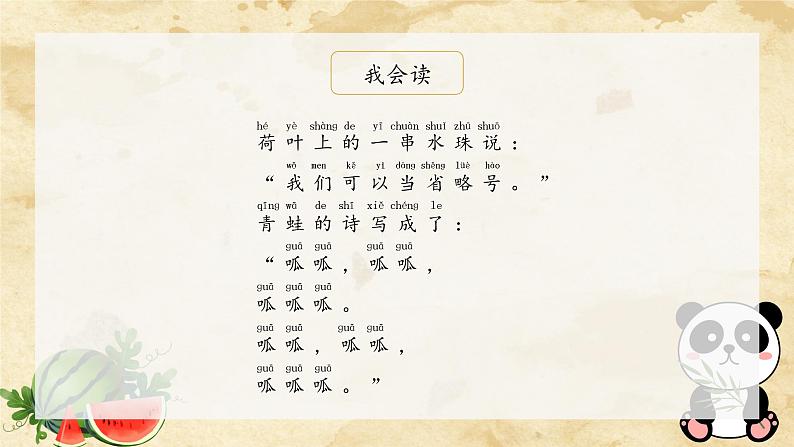 我会读
hé yè shàng de yī chuàn shuǐ zhū shuō
荷叶上的一串水珠说：
wǒ men kě yǐ dāng shěng lüè hào
“我们可以当省略号。”
qīng wā de shī xiě chéng le
青蛙的诗写成了：
guā guā guā guā
“呱呱，呱呱，
guā guā guā
呱呱呱。
guā guā guā guā
呱呱，呱呱，
guā guā guā
呱呱呱。”